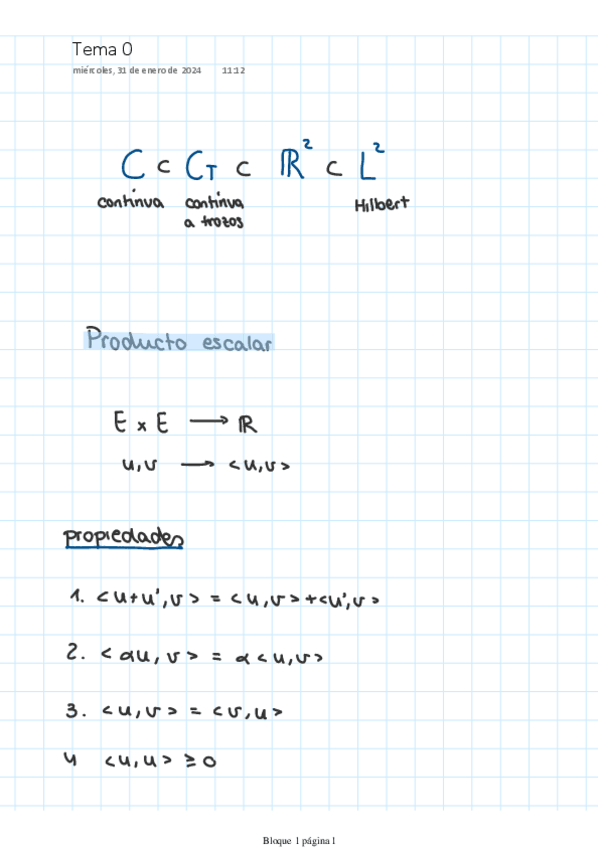 Tema 0
miércoles, 31 de enero de 2024 11:12
C ⊂ C_T ⊂ ℝ² ⊂ L²
continva continva Hilbert
a trozos
Producto escalar
E × E → ℝ
u,v → <u,v>
propiedades
1. <u+u',v> = <u,v>+<u',v>
2. <αu,v> = α<u,v>
3. <u,v> = <v,u>
4 <u,u> ≥ 0
Bloque 1 página 1